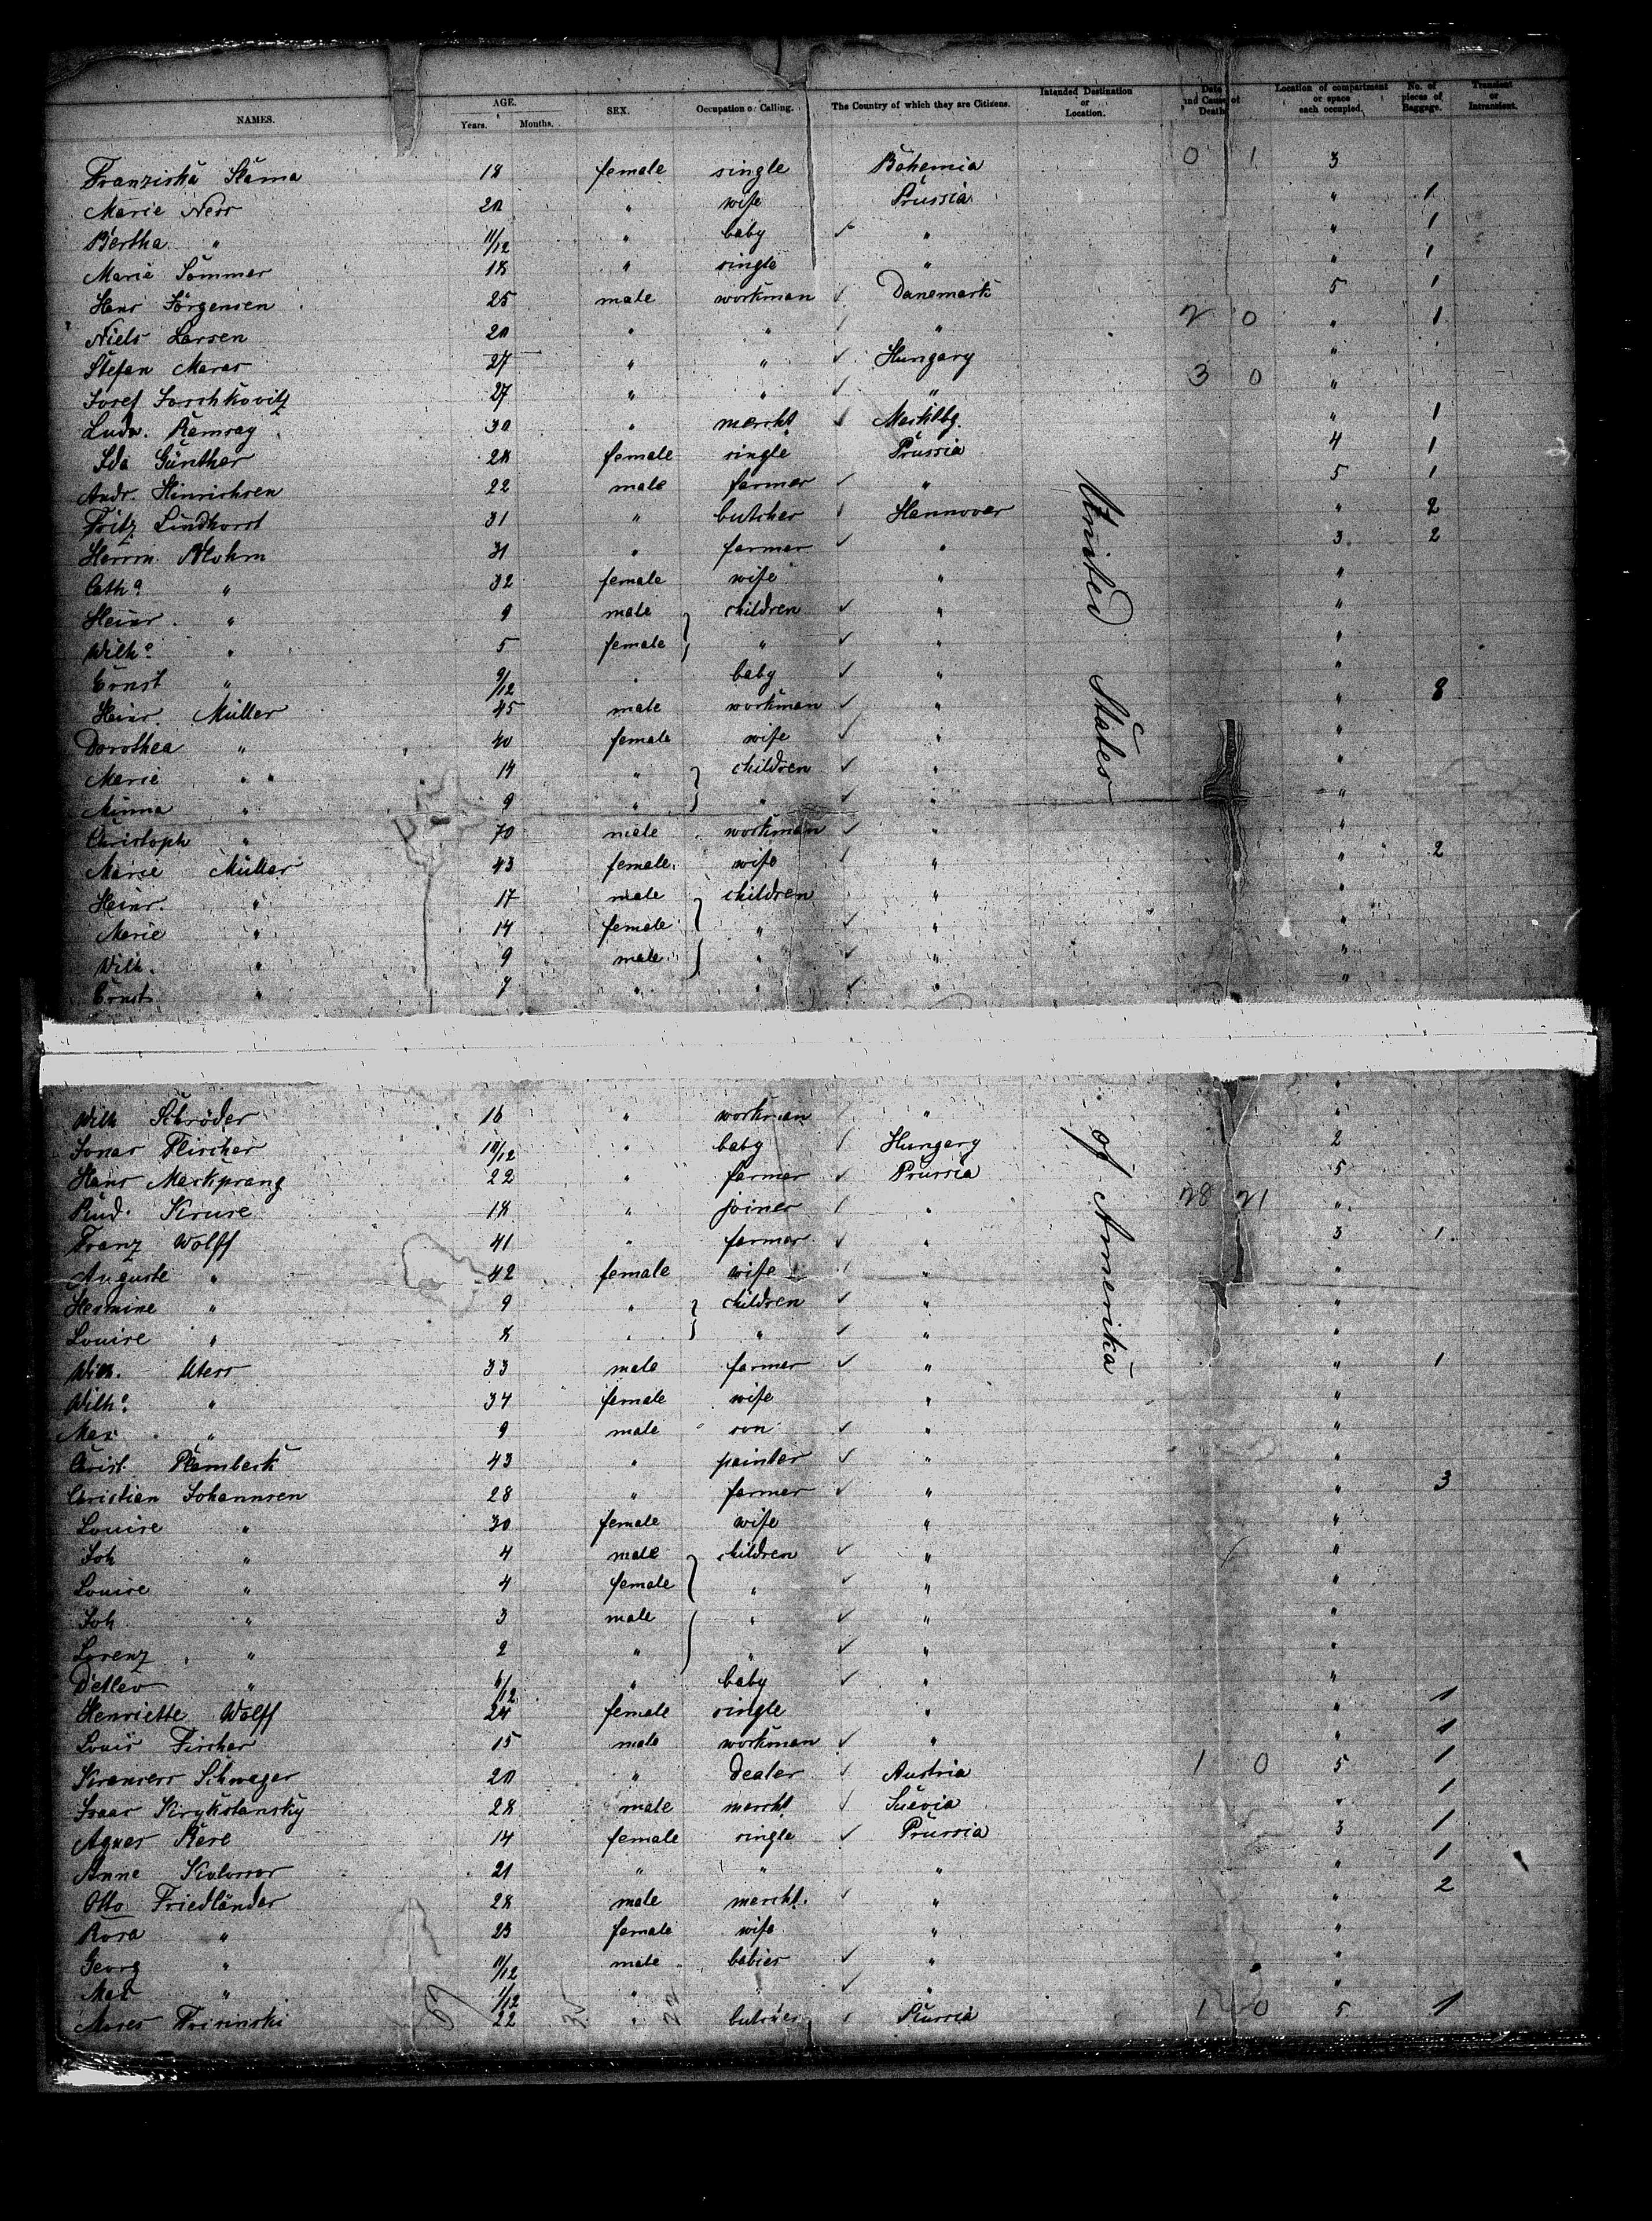 NAMES. AGE. Years. Months. SEX. Occupation or Calling. The Country of which they are Citizens. Intended Destination or Location. Date and Cause of Death Location of compartment or space each occupied. No. of pieces of Baggage. Transient or Intransient.
Franziska Slama 18 female single Bohemia 0 1 3
Marie Ness 20 " wife Prussia " 1
Bertha " 11/12 " baby " " 1
Marie Sommer 18 " single " " 1
Hans Jörgensen 25 male workman Danemark 5 1
Niels Larsen 20 " " " 2 0 " 1
Stefan Maras 27 " " Hungary "
Josef 27 " " " 3 0 "
Ludw. Ramsay 30 " mercht Mecklbg. " 1
Ida Günther 28 female single Prussia 4 1
Andr. Hinrichsen 22 male farmer " 5 1
Fritz Lindhorst 31 " butcher Hannover " 2
Herrm. 31 " farmer " 3 2
Cath.a " 32 female wife " "
Heinr. " 9 male children " "
Wilh.e " 5 female " " "
Ernst " 9/12 " baby " "
Heinr. Müller 45 male workman " " 8
Dorothea " 40 female wife " "
Marie " " 14 " children " "
Minna " 9 " " " "
Christoph " 70 male workman " "
Marie Müller 43 female wife " " 2
Heinr. " 17 male children " "
Marie " 14 female " " "
Wilh. " 9 male " " "
Ernst " 7 " " " "
United States of Amerika
Wilh Schröder 16 " workman " "
Jonas Fleischer 10/12 " baby Hungary 2
Hans Markprang 22 " farmer Prussia 5
Rud. Kruse 18 " joiner " 28 21 "
Franz Wolff 41 " farmer " 3 1
Auguste " 42 female wife " "
Hermine " 9 " children " "
Louise " 8 " " " "
Wilh. Utess 33 male farmer " " 1
Wilh.e " 34 female wife " "
Max " 9 male son " "
Christ. Plambeck 43 " painter " "
Christian Johannsen 28 " farmer " " 3
Louise " 30 female wife " "
Joh " 4 male children " "
Louise " 4 female " " "
Joh " 3 male " " "
Lorenz " 2 " " " "
Detlev " 6/12 " baby " "
Henriette Wolff 24 female single " " 1
Louis Fischer 15 male workman " " 1
Schwager 20 " dealer Austria 1 0 5 1
Isaac 28 male mercht Suevia " 1
Agnes 14 female single Prussia 3 1
Anne 21 " " " " 1
Otto Friedländer 28 male mercht. " " 2
Rosa " 23 female wife " "
Georg " 11/12 male babies " "
Max " 1/12 " " " "
Moses 22 " butcher Prussia 1 0 5 1